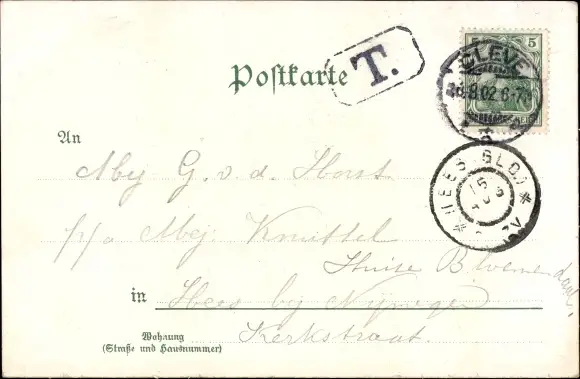 5 5
CLEVE
8.02.6-7
T.
Postkarte
HEES (GLD.)
15
An
Mej G. v. d. Horst
p/a Mej. Knuttel
Huize Bloemendaal,
in Hees bij Nijmegen
Kerkstraat.
Wohnung
(Straße und Hausnummer)